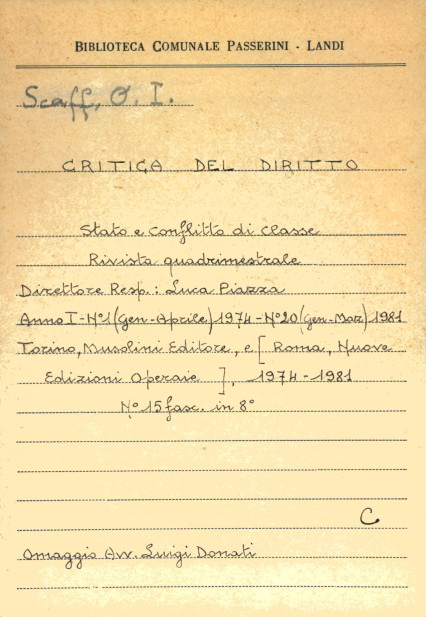 BIBLIOTECA COMUNALE PASSERINI - LANDI
Scaff. O. I.
CRITICA DEL DIRITTO
Stato e conflitto di classe
Rivista quadrimestrale
Direttore Resp.: Luca Piazza
Anno I - N° 1 (Gen-Aprile) 1974 - N° 20 (Gen-Mar) 1981
Torino, Musolini Editore, e [ Roma, Nuove
Edizioni Operaie ], 1974 - 1981
N° 15 fasc. in 8°
C
Omaggio Avv. Luigi Donati